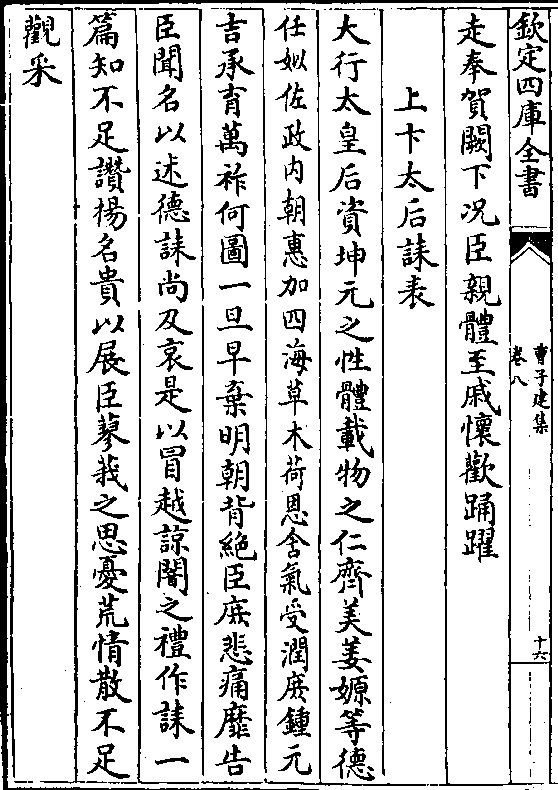 欽定四庫全書
曹子建集
卷八
十六
走奉賀闕下况臣親體至戚懷歡踊躍
上卞太后誄表
大行太皇后資坤元之性體載物之仁齊美姜嫄等德
任姒佐政内朝惠加四海草木荷恩含氣受潤庶鍾元
吉承育萬祚何圖一旦早棄明朝背絶臣庶悲痛靡告
臣聞名以述德誄尚及哀是以冒越諒闇之禮作誄一
篇知不足讚揚名貴以展臣蓼莪之思憂荒情散不足
觀采